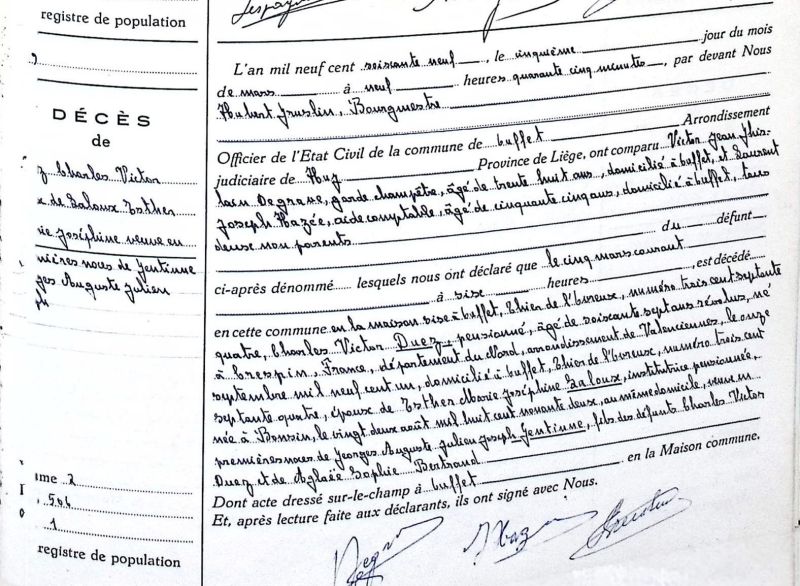 registre de population
DÉCÈS
de
z Charles Victor
x de Saloux Esther
rie Joséphine veuve en
mières noces de Jentinne
ges Auguste Julien
ph
ime 2
504
1
registre de population
L'an mil neuf cent soixante neuf, le cinquième jour du mois
de mars à neuf heures quarante cinq minutes, par devant Nous
Hubert Bourgmestre
Officier de l'Etat Civil de la commune de buffet Arrondissement
judiciaire de Huy Province de Liège, ont comparu Victor Jean Ghis-
lain Degrave, garde champêtre, âgé de trente huit ans, domicilié à buffet, et Laurent
Joseph Hazée, aide comptable, âgé de cinquante cinq ans, domicilié à buffet, tous
deux non parents du défunt
ci-après dénommé lesquels nous ont déclaré que le cinq mars courant
à sise heures, est décédé
en cette commune en la maison sise à buffet, Thier de l'Ivreux, numéro trois cent septante
quatre, Charles Victor Duez, pensionné, âgé de soixante sept ans révolus, né
à Crespin, France, département du Nord, arrondissement de Valenciennes, le onze
septembre mil neuf cent un, domicilié à buffet, Thier de l'Ivreux, numéro trois cent
septante quatre, époux de Esther Marie Joséphine Saloux, institutrice pensionnée,
née à Bonsin, le vingt deux août mil huit cent nonante deux, au même domicile, veuve en
premières noces de Georges Auguste Julien Joseph Jentinne, fils des défunts Charles Victor
Duez et de Aglaée Sophie Bertraud
Dont acte dressé sur-le-champ à buffet en la Maison commune.
Et, après lecture faite aux déclarants, ils ont signé avec Nous.